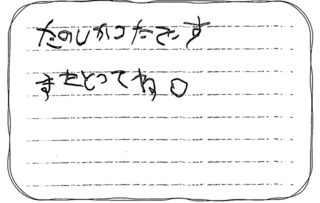 たのしかったです
またとってね○